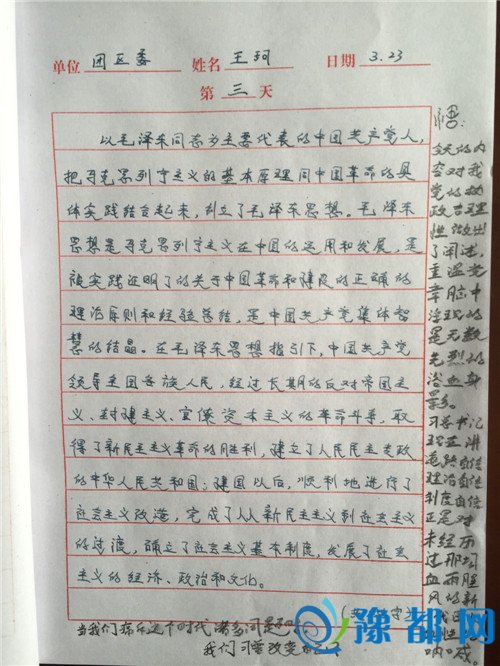 单位 团区委 姓名 王珂 日期 3.23
第 三 天
以毛泽东同志为主要代表的中国共产党人,
把马克思列宁主义的基本原理同中国革命的具
体实践结合起来,创立了毛泽东思想。毛泽东
思想是马克思列宁主义在中国的运用和发展,是
被实践证明了的关于中国革命和建设的正确的
理论原则和经验总结,是中国共产党集体智
慧的结晶。在毛泽东思想指引下,中国共产党
领导全国各族人民,经过长期的反对帝国主
义、封建主义、官僚资本主义的革命斗争,取
得了新民主主义革命的胜利,建立了人民民主专政
的中华人民共和国;建国以后,顺利地进行了
社会主义改造,完成了从新民主主义到社会主义
的过渡,确立了社会主义基本制度,发展了社会
主义的经济、政治和文化。
今天的内
容对我
党的执
政合理
性做出
了阐述,
重温党
章脑中
浮现的
是无数
先烈的
浴血身
影。
习总书记
现在讲
道路自信
理论自信
制度自信
正是对
未经历
过那场
血雨腥
风的新
性
呐喊。
当我们存在这个时代
我们习章改变
豫都网